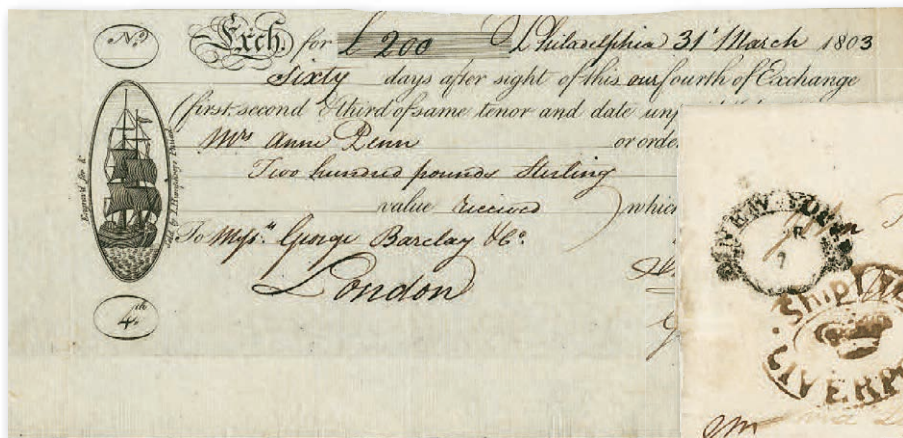 No.
Exch. for £ 200 Philadelphia 31st March 1803
Sixty days after sight of this our fourth of Exchange
(first, second & third of same tenor and date
Mrs Anne Penn or order
Two hundred pounds Sterling
value received) which
To Messrs. George Barclay & Co.
London
4th
Engrav'd for &
NEW YORK
7
Ship
LIVERP